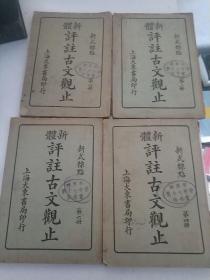 新式標點
新體評註古文觀止
上海大東書局印行
新式標點
新體評註古文觀止
上海大東書局印行
新式標點
新體評註古文觀止
上海大東書局印行
新式標點 第四册
新體評註古文觀止
上海大東書局印行